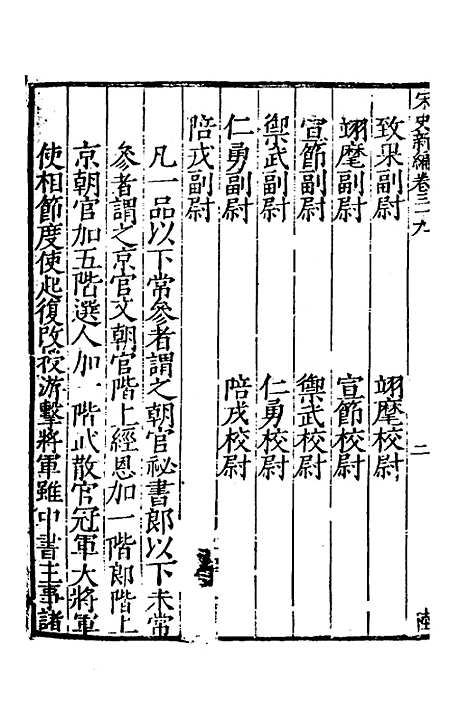 宋史新編卷三十九
二
致果副尉 翊麾校尉
翊麾副尉 宣節校尉
宣節副尉 禦武校尉
禦武副尉 仁勇校尉
仁勇副尉 陪戎校尉
陪戎副尉
凡一品以下常參者謂之朝官祕書郎以下未常
參者謂之京官文朝官階上經恩加一階郎階上
京朝官加五階選人加一階武散官冠軍大將軍
使相節度使起復改授游擊將軍雖中書主事諸